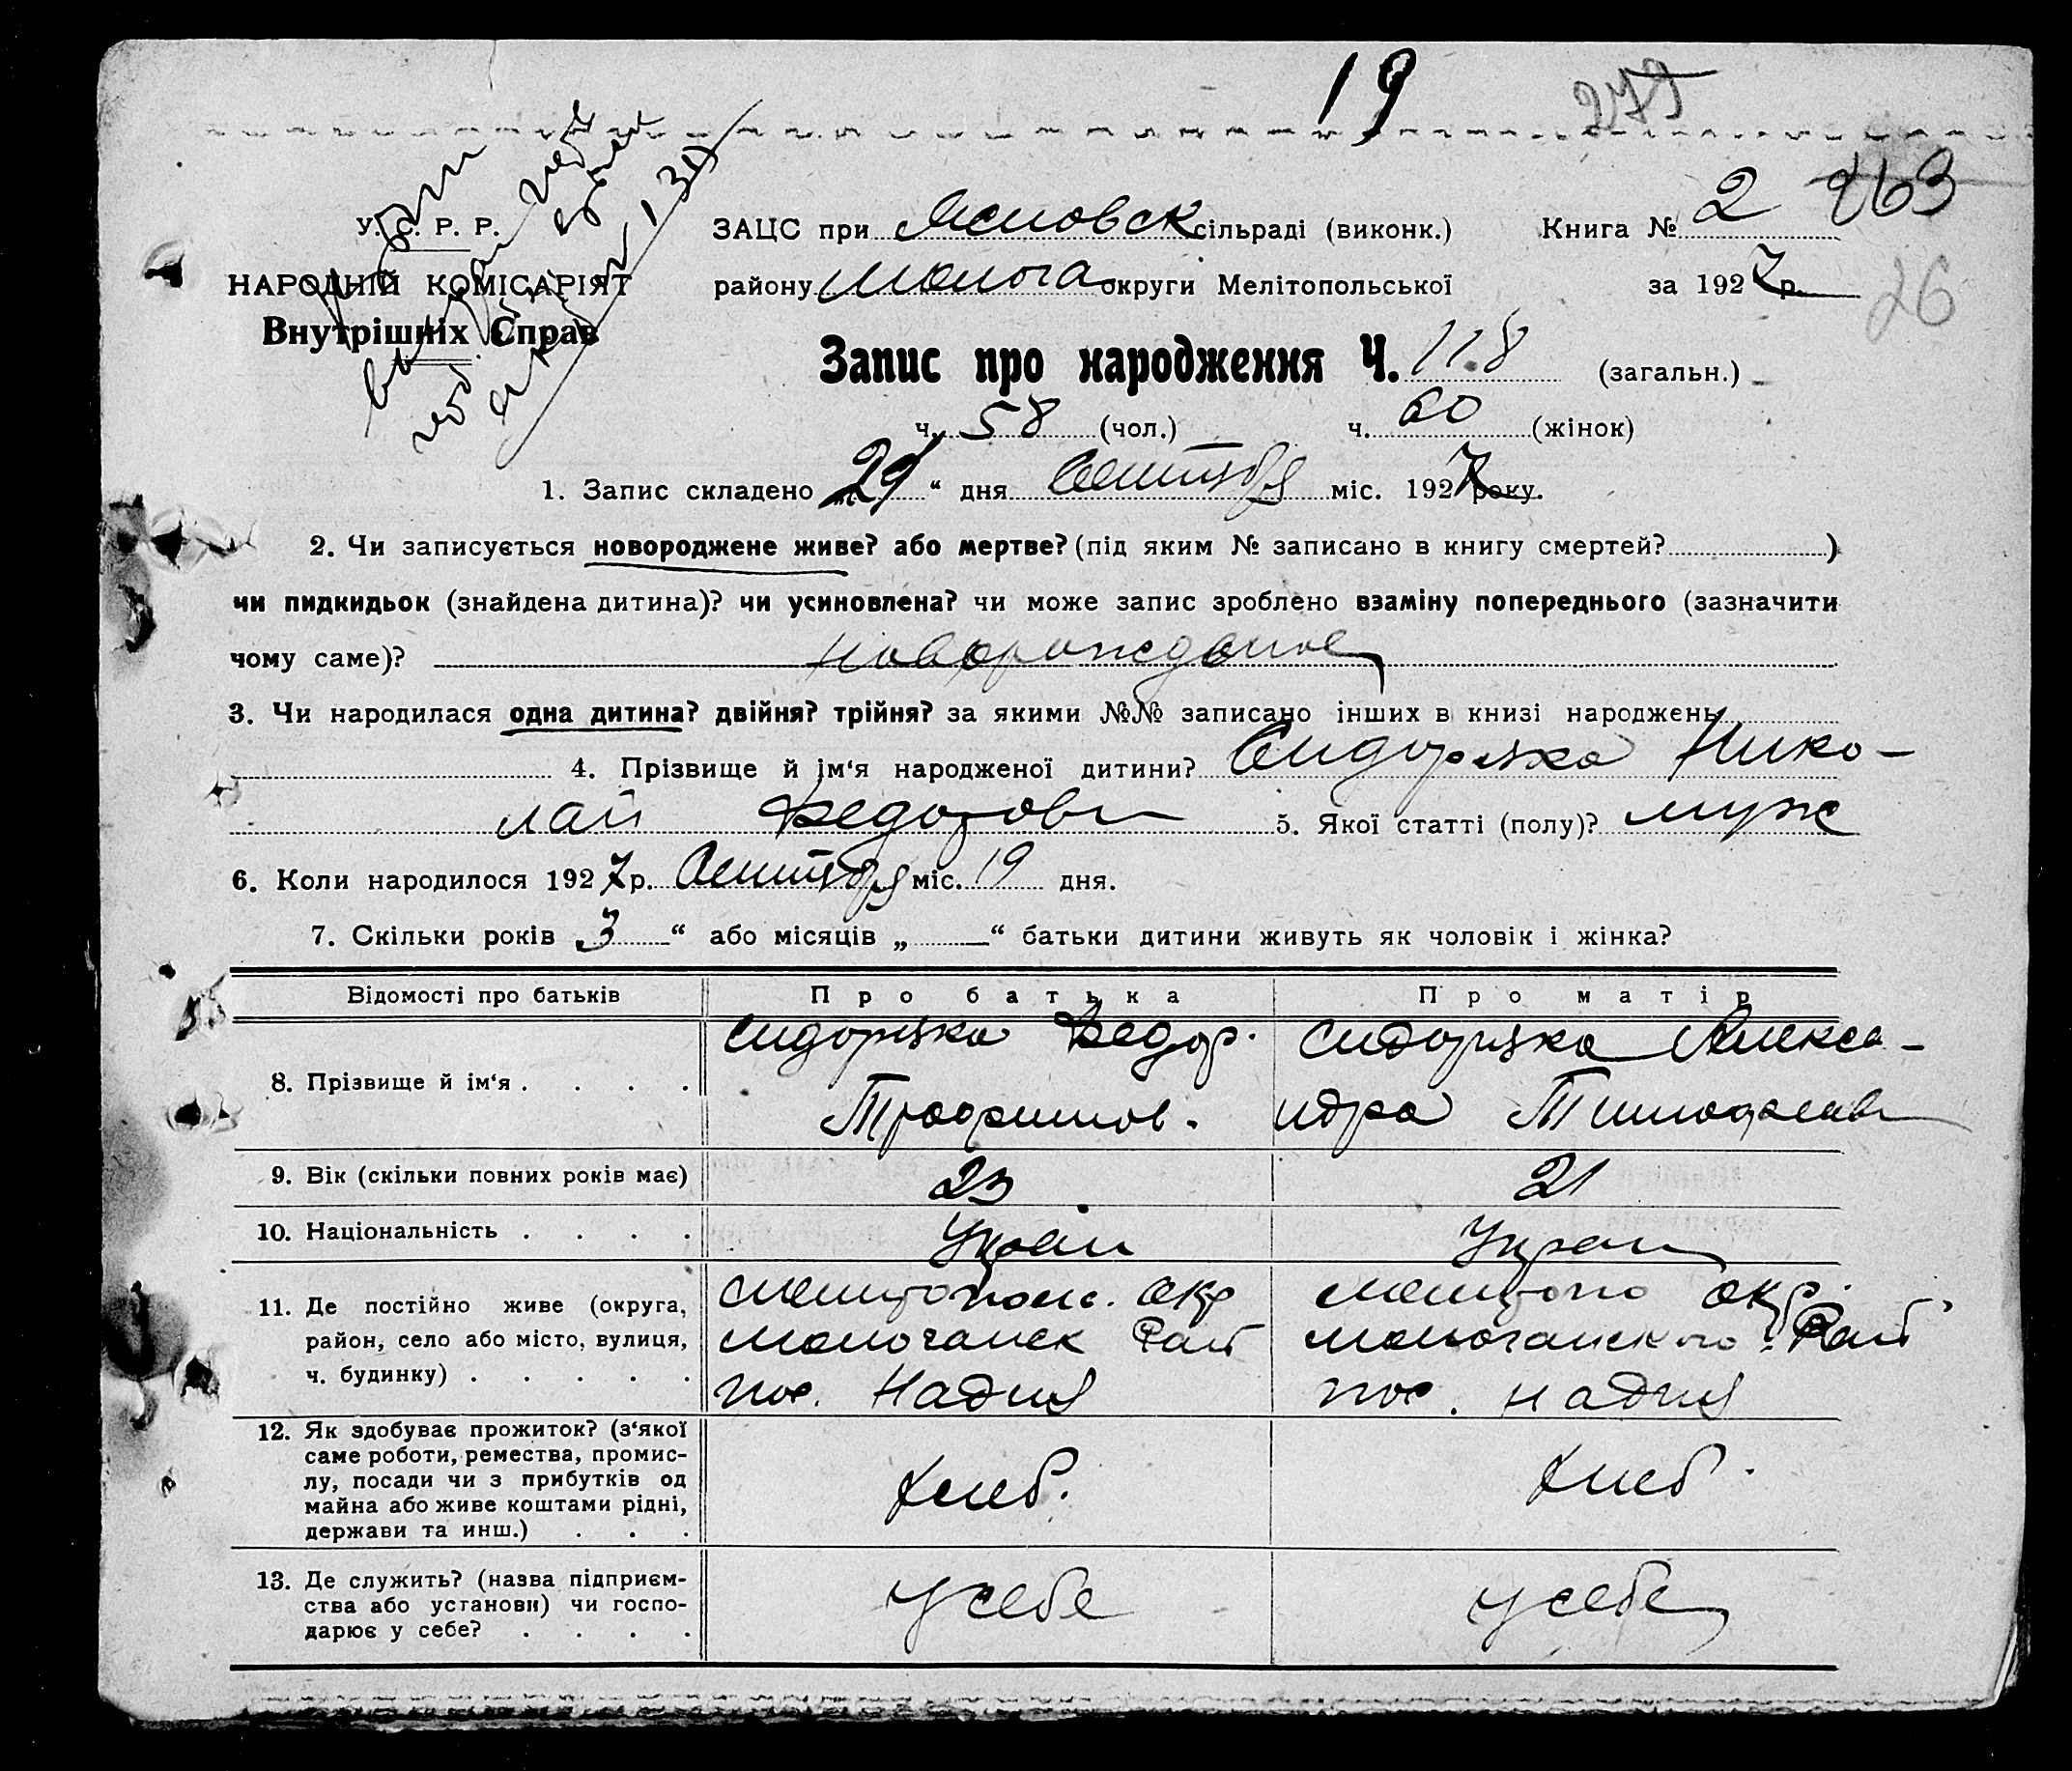 19 275
У. С. Р. Р.
НАРОДНІЙ КОМІСАРІЯТ
Внутрішніх Справ
ЗАЦС при Ясиновск сільраді (виконк.) Книга № 2 263
району Молоча округи Мелітопольської за 1927 р. 26
Запис про народження Ч. 118 (загальн.)
ч. 58 (чол.) ч. 60 (жінок)
1. Запис складено 29 “ дня Сентября міс. 1927 року.
2. Чи записується новороджене живе? або мертве? (під яким № записано в книгу смертей? )
чи пидкидьок (знайдена дитина)? чи усиновлена? чи може запис зроблено взаміну попереднього (зазначити
чому саме)? Новорожденое
3. Чи народилася одна дитина? двійня? трійня? за якими №№ записано інших в книзі народжень
4. Прізвище й ім‘я народженої дитини? Сидорцка Нико-
лай Федоров 5. Якої статті (полу)? муж
6. Коли народилося 1927 р. Сентября міс. 19 дня.
7. Скільки років 3 “ або місяців „ “ батьки дитини живуть як чоловік і жінка?
Відомості про батьків Про батька Про матір
8. Прізвище й ім‘я . . . . Сидорцка Федор. Трофимов. Сидорцка Алекса-ндра Тимофеев
9. Вік (скільки повних років має) 23 21
10. Національність . . . . Украін Украин
11. Де постійно живе (округа,
район, село або місто, вулиця,
ч. будинку) . . . . .
Мелитопол. окр
Молочанск Рай
пос. Надия
Мелитопо окр.
Молочанского Рай
пос. Надия
12. Як здобуває прожиток? (з‘якої
саме роботи, ремества, промис-
лу, посади чи з прибутків од
майна або живе коштами рідні,
держави та инш.) . . .
Хлеб. Хлеб.
13. Де служить? (назва підприєм-
ства або установи) чи госпо-
дарює у себе? . . . .
У себе У себе